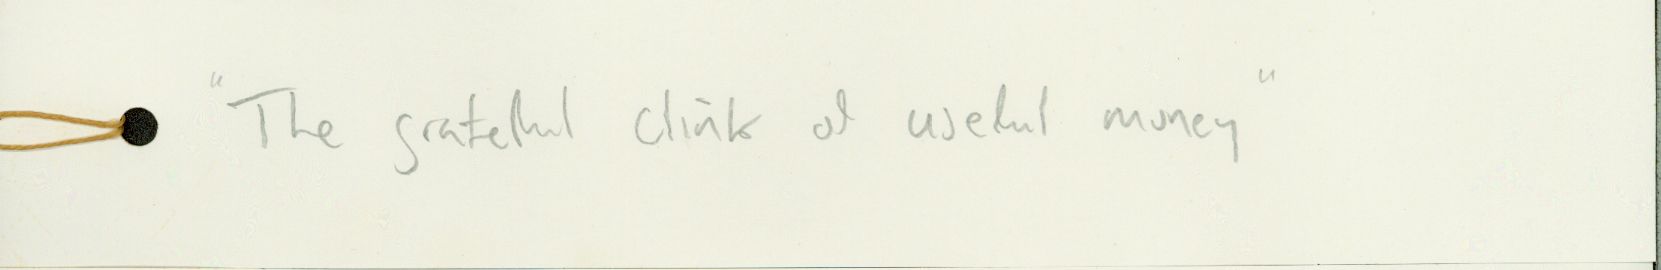 "The grateful clink of useful money"